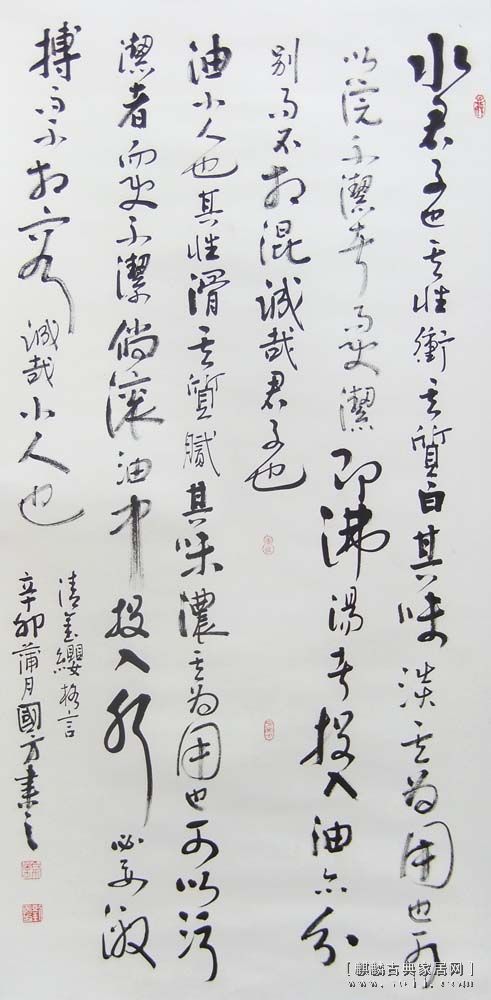 水君子也其性衝其質白其味淡其為用也可
以浣不潔者而使潔即沸湯者投入油亦分
别而不相混誠哉君子也
油小人也其性滑其質膩其味濃其為用也可以污
潔者而使不潔倘滾油中投入水必至激
搏而不相容誠哉小人也
清金纓格言
辛卯蒲月國方書之
[麒麟古典家居网]